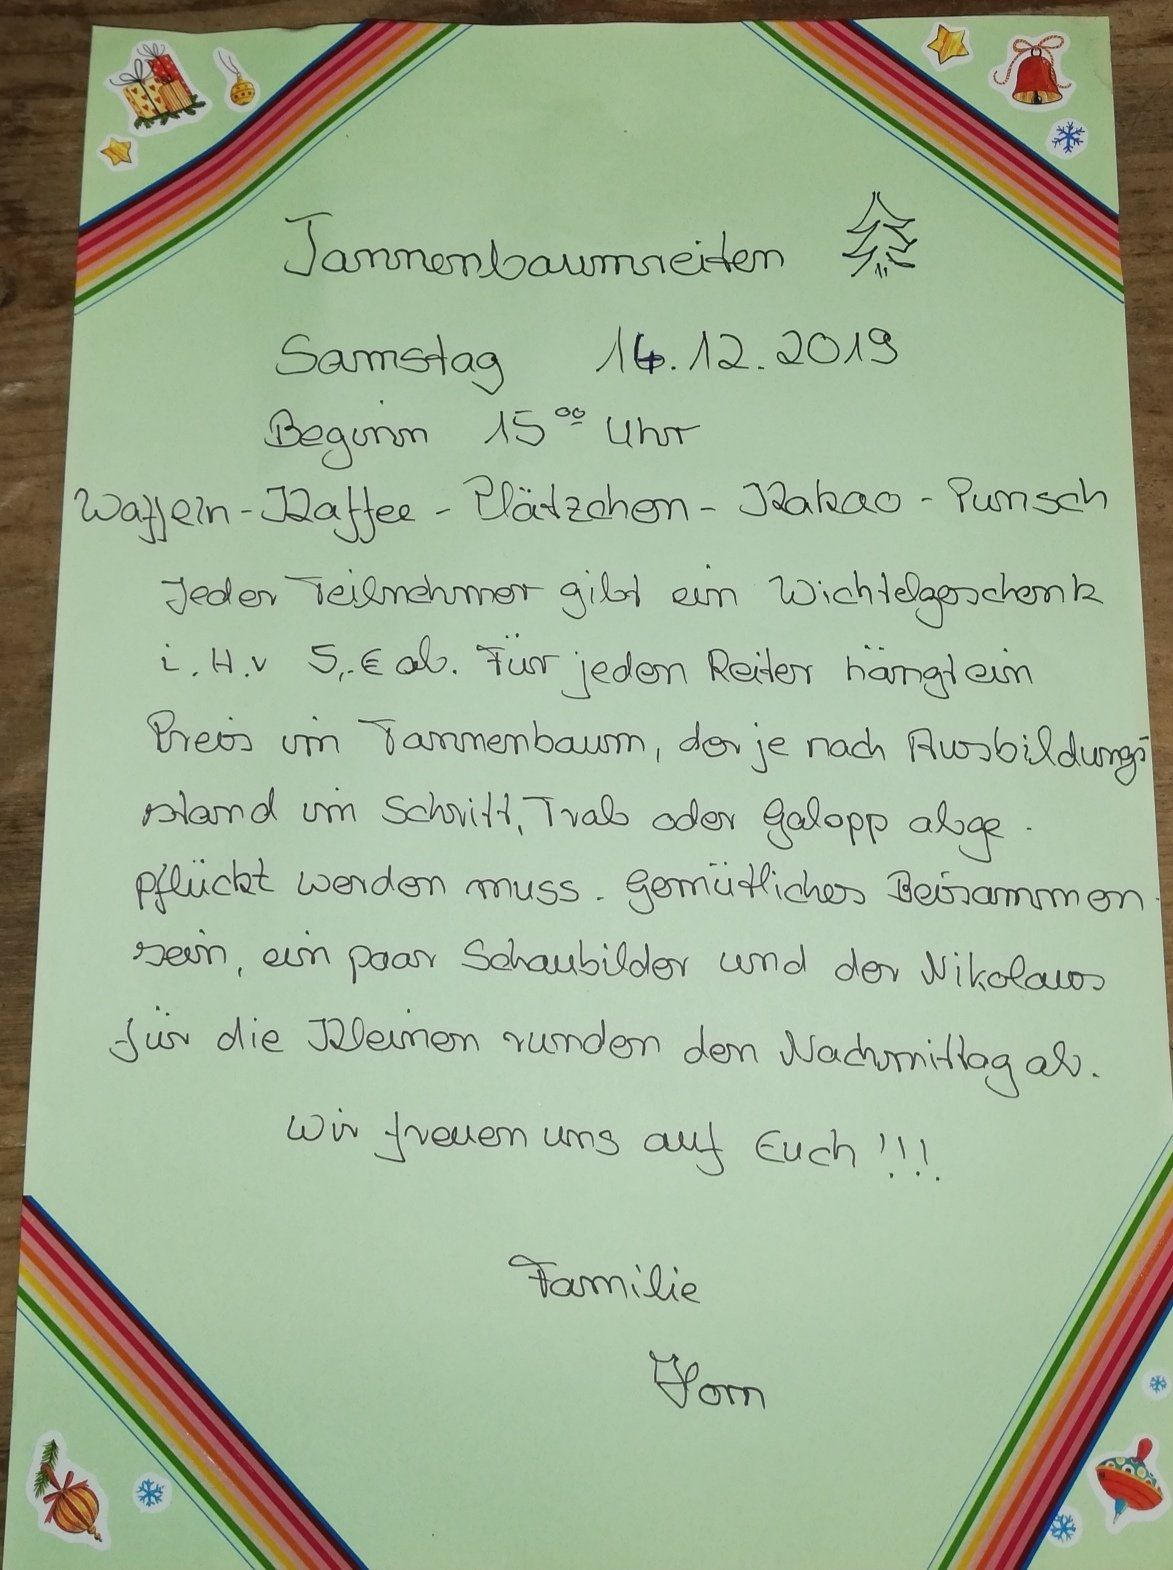 Tannenbaumreiten
Samstag 14.12.2019
Beginn 15⁰⁰ Uhr
Waffeln - Kaffee - Plätzchen - Kakao - Punsch
Jeder Teilnehmer gibt ein Wichtelgeschenk
i.H.v 5,-€ ab. Für jeden Reiter hängt ein
Preis im Tannenbaum, der je nach Ausbildungs
stand im Schritt, Trab oder Galopp abge-
pflückt werden muss. Gemütliches Beisammen-
sein, ein paar Schaubilder und der Nikolaus
für die Kleinen runden den Nachmittag ab.
Wir freuen uns auf Euch!!!
Familie